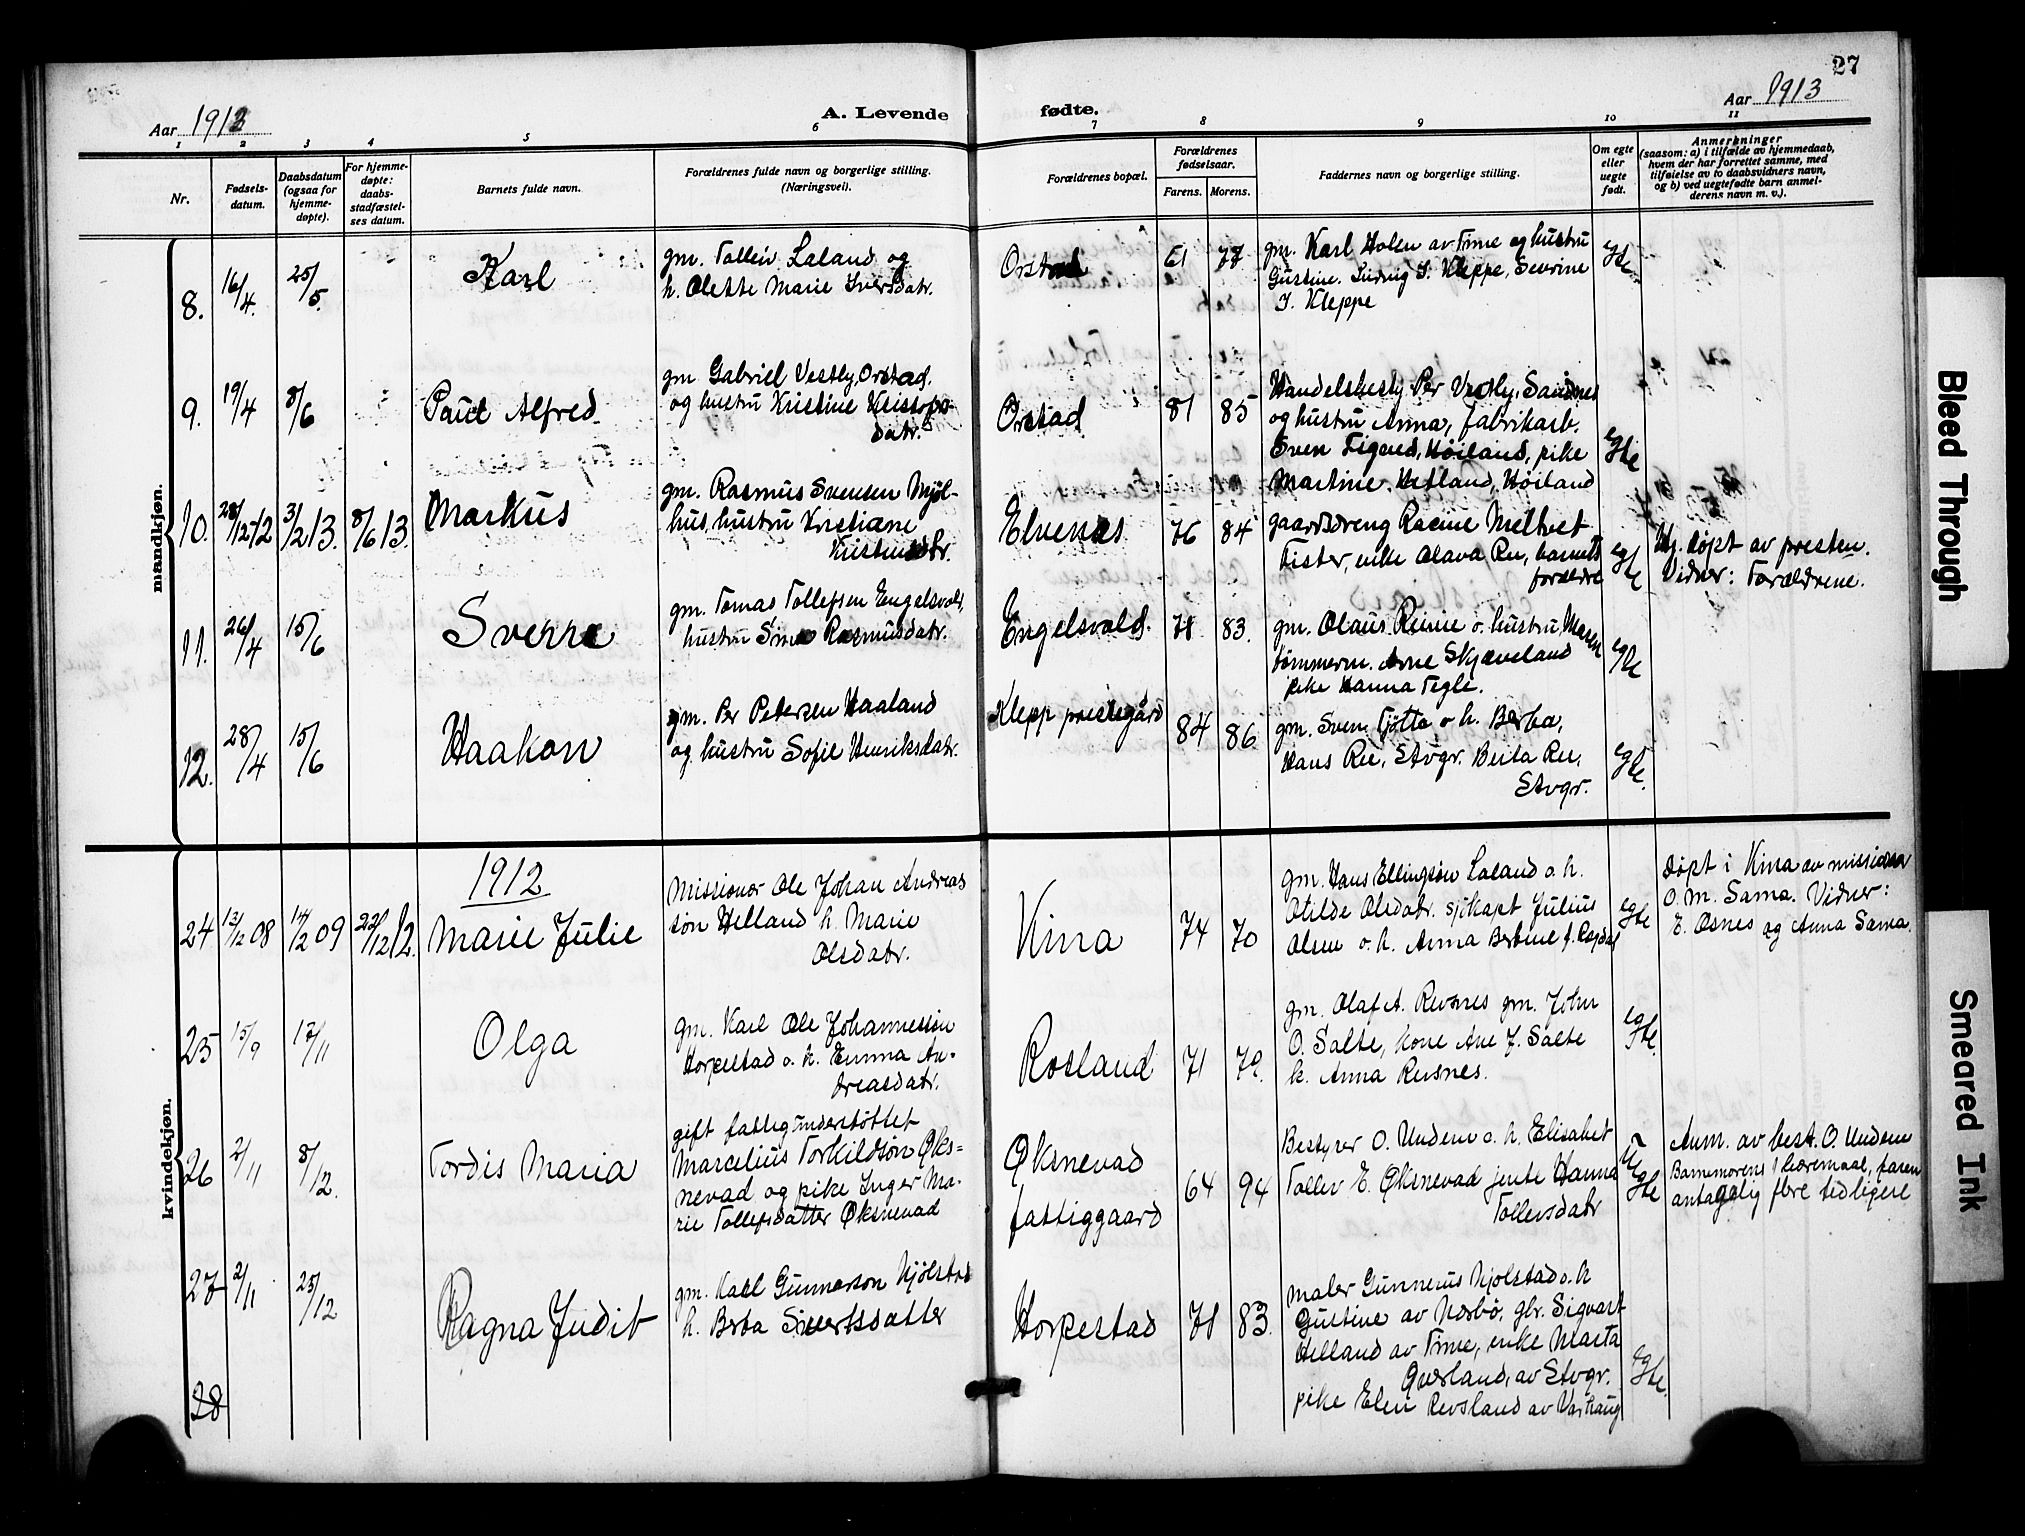 27
Aar 1913
A. Levende fødte.
Aar 1913
1 2 3 4 5 6 7 8 9 10 11
Nr.
Fødsels-
datum.
Daabsdatum
(ogsaa for
hjemme-
døpte).
For hjemme-
døpte:
daabs-
stadfæstel-
ses datum.
Barnets fulde navn.
Forældrenes fulde navn og borgerlige stilling.
(Næringsvei).
Forældrenes bopæl.
Forældrenes
fødselsaar.
Farens. Morens.
Faddernes navn og borgerlige stilling.
Om egte
eller
uegte
født.
Anmerkninger
(saasom: a) i tilfælde av hjemmedaab,
hvem der har forrettet samme, med
tilføielse av to daabsvidners navn,
og b) ved uegtefødte barn anmel-
derens navn m. v.).
mandkjøn.
8. 16/4. 25/5. Karl
gm. Tolleiv Laland og
h. Olette Marie Iversdatr.
Orstad 61 77
gm. Karl Holen av Time og hustru
Gustine. Ludvig I. Kleppe, Sevrine
I. Kleppe
egte
9. 19/4 8/6 Paul Alfred
gm Gabriel Vestly, Orstad.
og hustru Kristine Kristofers-
datr.
Orstad 81 85
Handelsbesty. Per Vestly, Sandnes
og hustru Anna, fabrikarb.
Sven Tigend, Høiland, pike
Martine Hetland, Høiland
egte
10. 28/12 12 3/2 13. 8/6 13. Markus
gm. Rasmus Svensen Mjøl-
hus, hustru Kristiane
Kristensdtr.
Elvenes 76 84
gaardsdreng Rasme Meltvet
Fister, enke Olava Re, barnets
forældre
egte
Hj. døpt av presten.
Vidner: Forældrene.
11. 26/4 15/6 Sverre
gm. Tomas Tollefsen Engelsvold,
hustru Sina Rasmusdatr.
Engelsvold. 71 83.
gm. Olaus Reime o. hustru Maren
tømmerm. Arne Skjæveland
pike Hanna Tegle.
egte
12. 28/4 15/6 Haakon
gm. Per Petersen Haaland
og hustru Sofie Henriksdatr.
Klepp prestegård 84 86
gm. Sven Tjøtta o h. Berta,
Hans Re, Stvgr. Berta Re,
Stvgr.
egte.
kvindekjøn.
1912
24 13/12 08 14/2 09 22/12 12. Marie Julie
Missionær Ole Johan Andreas
søn Helland h. Marie
Olsdatr.
Kina 74 70
gm. Hans Ellingsøn Laland o. h.
Otilde Olsdatr. sjökapt Julius
Olsen o. h. Anna Bertine f. Rosdal
egte
døpt i Kina av missionær
O. M. Sama. Vidner:
E. Osnes og Anna Sama.
25 15/9 17/11 Olga
gm. Karl Ole Johannessøn
Horpestad o. h. Emma An-
dreasdatr.
Rosland 71 79.
gm. Olaf A. Revsnes gm. John
O. Salte, kone Ane J. Salte
k. Anna Revsnes.
egte.
26 2/11 8/12. Tordis Maria
gift fattigunderstøttet
Marcelius Torkildsøn Øks-
nevad og pike Inger Ma-
rie Tollefsdatter Øksnevad
Øksnevad
fattiggaard
64 94
Bestyrer O. Undem o. h. Elisabet
Tollev E. Øksnevad jente Hanna
Tollevsdatr
Uegte
Anm. av best. O. Undem
Barnemorens 1 leiermaal, faren
antagelig flere tidligere
27 2/11 25/12 Ragna Judit
gm. Karl Gunnarson Njølstad
h. Berta Sivertsdatter
Horpestad 71 83.
maler Gunnerius Njolstad o. h
Gustine av Nærbö, gbr. Sigvart
Helland av Time, enke Marta
Qværland, av Stvgr.
pike Elen Revsland av Varhaug
egte.
28
Bleed Through
Smeared Ink